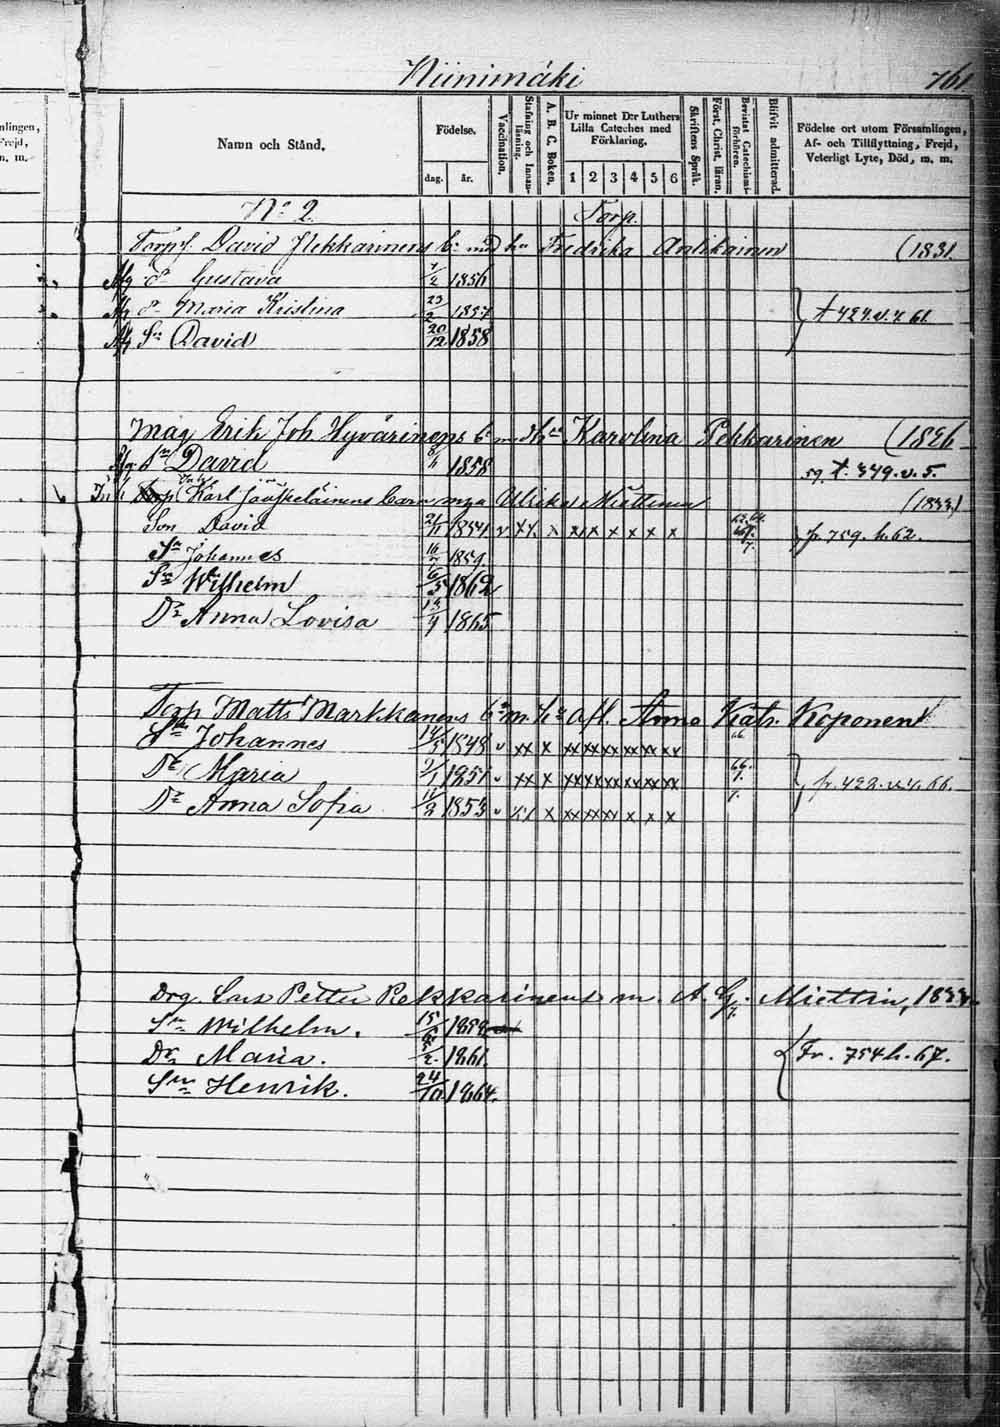 Niinimäki 761
Namn och Stånd. Födelse. dag. år. Vaccination. Stafning och Innanläsning. A. B. C. Boken. Ur minnet D:r Luthers Lilla Cateches med Förklaring. 1 2 3 4 5 6 Skriftens Språk. Först. Christ. läran. Bevistat Catechismi-förhören. Blifvit admitterad. Födelse ort utom Församlingen, Af- och Tillflyttning, Frejd, Veterligt Lyte, Död, m. m.
mlingen,
Frejd,
n. m.
No 2. Torp.
David Pekkarinens b. med hu Fredrika Antikainen (1831.
Afg dr Gustava 1856
Afg dr Maria Kristina 23/2 1857
Afg Sn David 20/12 1858
Måg Erik Joh Hyvärinens b. med hu Karolina Pekkarinen (1826
Afg Sn David 1858 t. 349. v. 5.
Karl Jääskeläinens barn Ulrika Miettinen (1833)
Son David 21/11 1854 v xx x x x x x x x fr 759. h. 62.
Sn Johannes 16/7 1859.
Sn Wilhelm 16/5 1862
Dr Anna Lovisa 13/4 1865
Torp Matts Markkanens b. m. hu afl. Anna Katr. Koponen †
Sn Johannes 14/5 1848 v xx x xx xx xx xx xx xx 66.
Dr Maria 9/1 1851 v xx x xx xx xx xx xx xx 66. 7. fr. 422. v. 4. 66.
Dr Anna Sofia 11/2 1853 v xx x xx xx xx x x x 7.
Drg. Lars Petter Pekkarinens m. A. G. Miettin, 1833
Sn Wilhelm. 15/6 1858 7.
Dr Maria. 5/2 1861. Fr. 754 h. 67.
Sn Henrik. 24/10 1864.